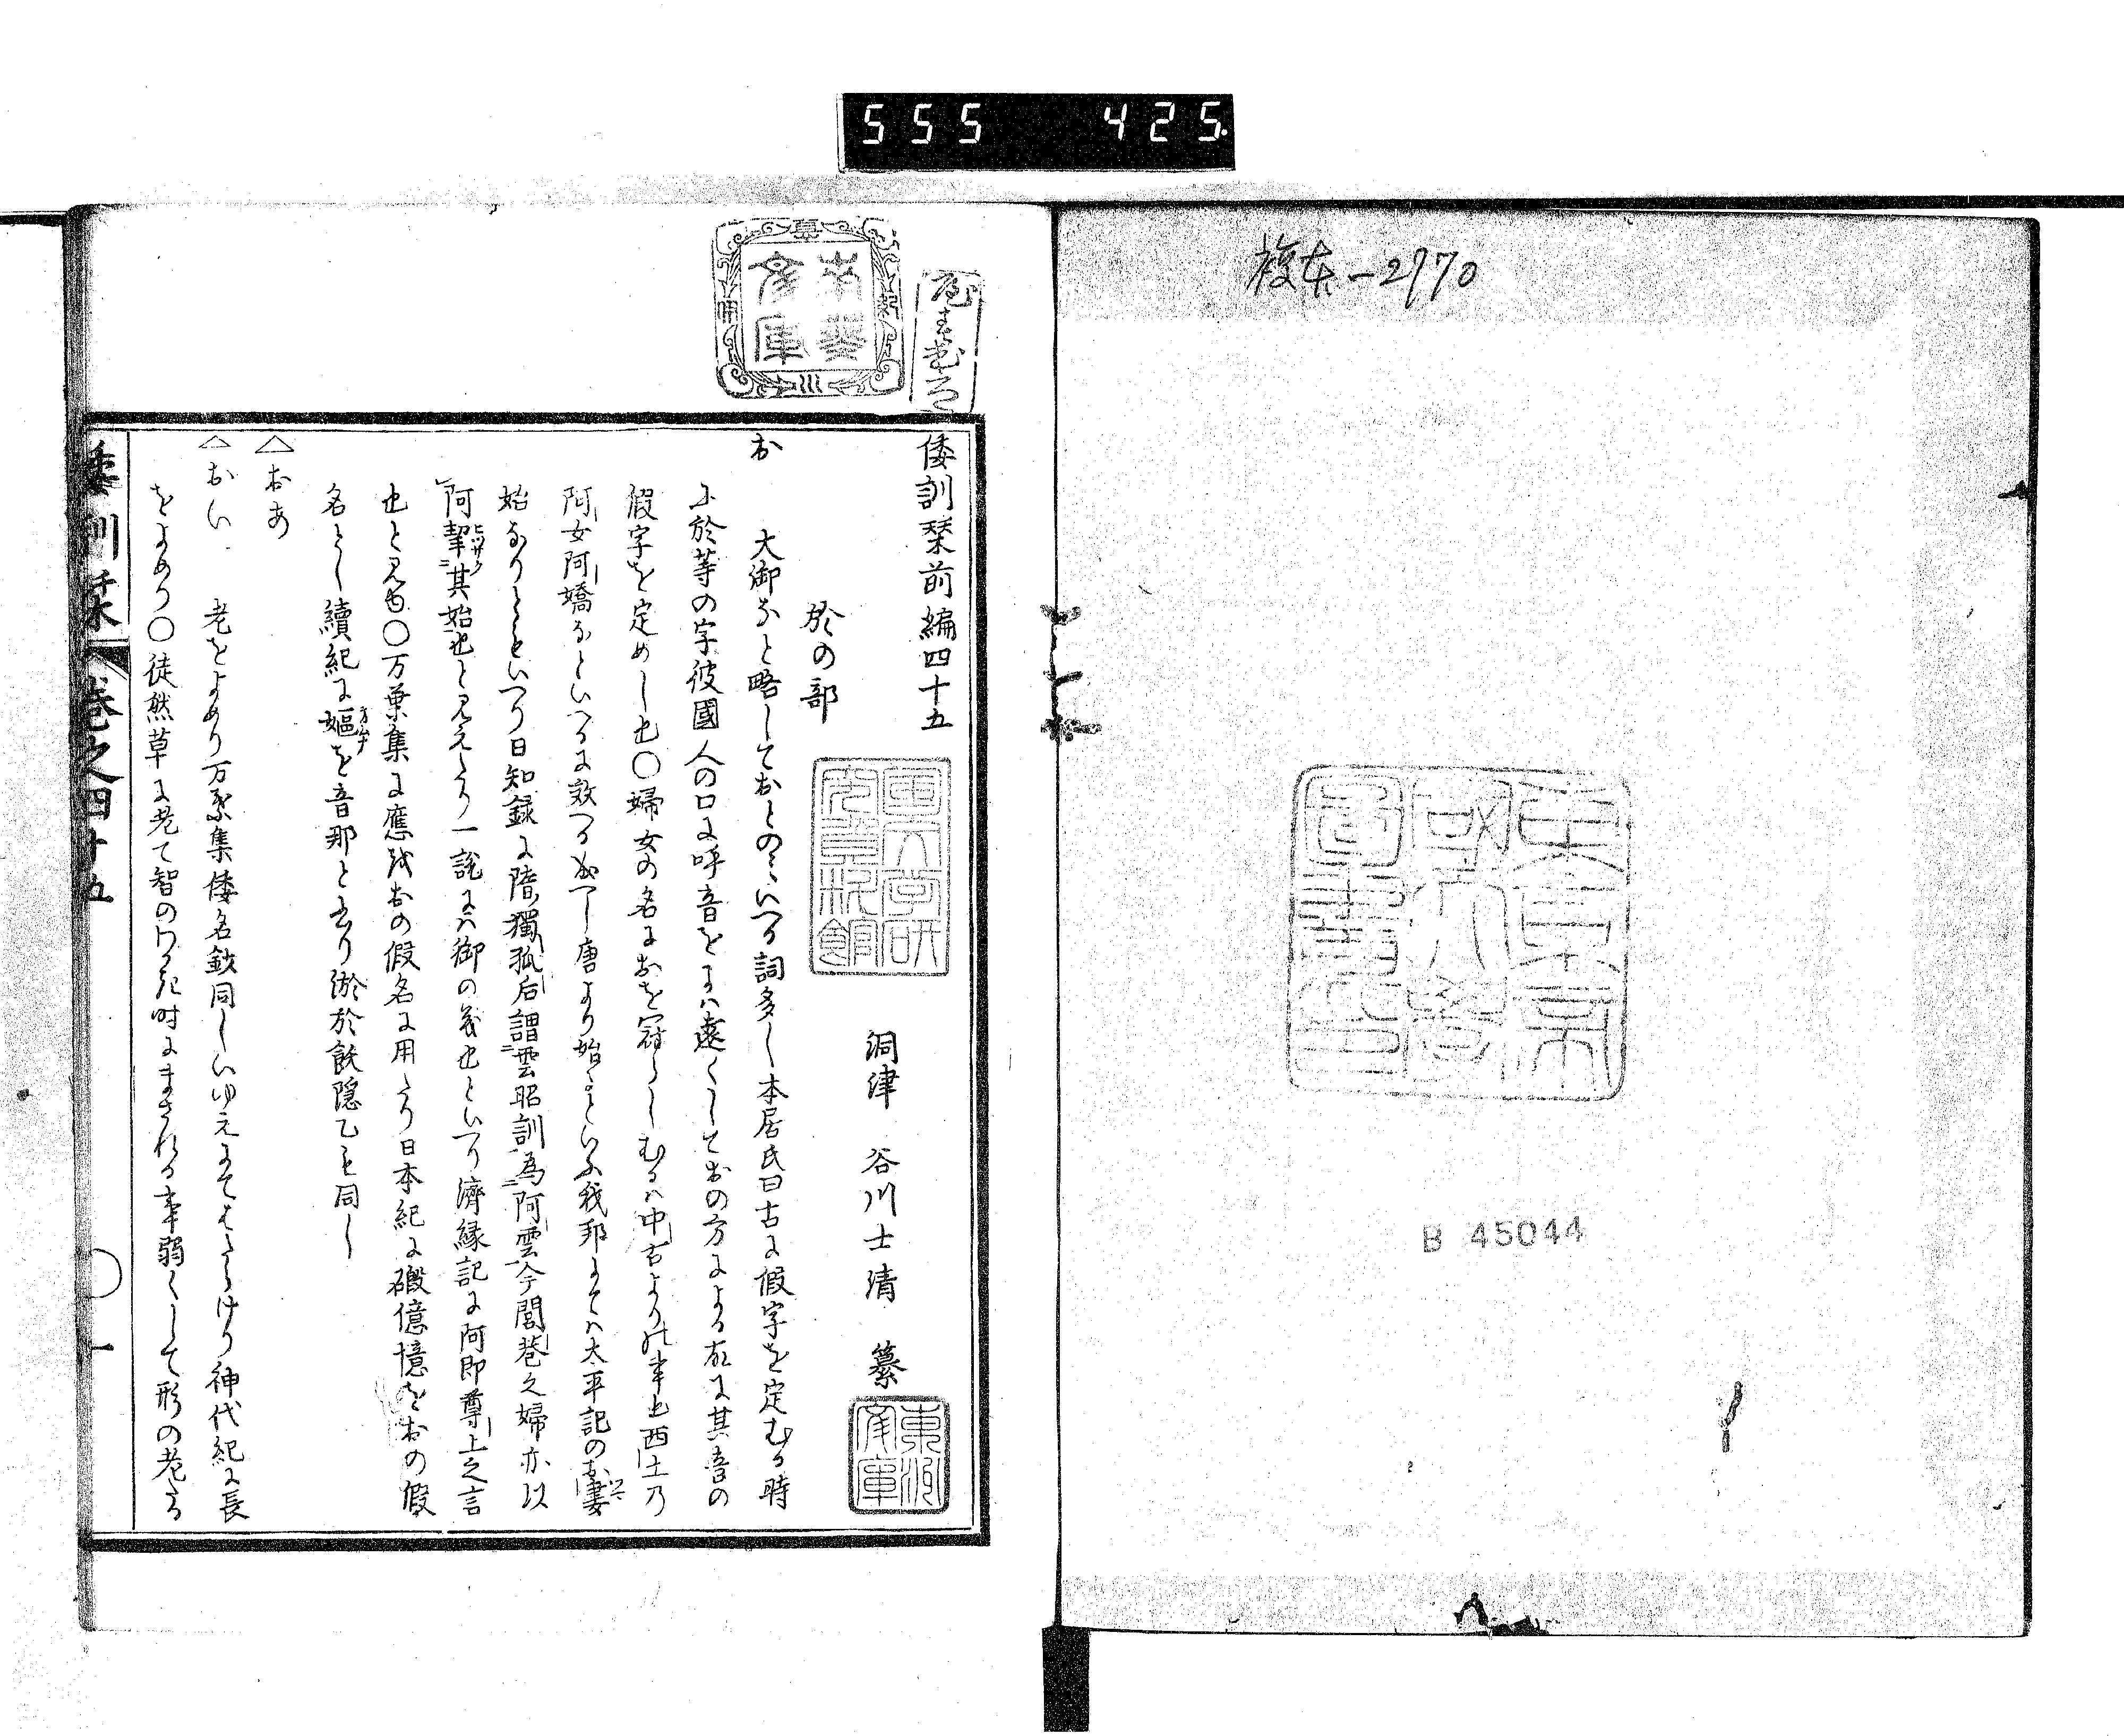 555 425
複本-2970
B 45044
倭訓栞前編四十五
洞津 谷川士清 纂
於の部
お 大御なと略しておとのといへる詞多し本居氏曰古に假字を定むる時
に於等の字彼國人の口に呼音をは遠くしておの方による故に其音の
假字を定めし也〇婦女の名におを冠らしむるハ中古よりの事也西土乃
阿女阿嬌なといへるに效へる成へし唐より始るといふ我邦にてハ太平記のお妻
始なりといへり日知録に隋獨孤后謂雲昭訓為阿雲今閭巷之婦亦以
阿挈其始也と見えたり一説にハ御の義也といへり濟縁記に阿即尊上之言
也と見ゆ〇万葉集に應はおの假名に用たり日本紀に磤億憶をおの假
名とし續紀に嫗を音那と書り淤於飫隠乙も同し
△おあ
△おい 老をよめり万葉集倭名鈔同しいゆえにてはたらけり神代紀に長
をよめり〇徒然草に老て智のわかき時にまされる事弱くして形の老たる
倭訓栞 卷之四十五 〇一